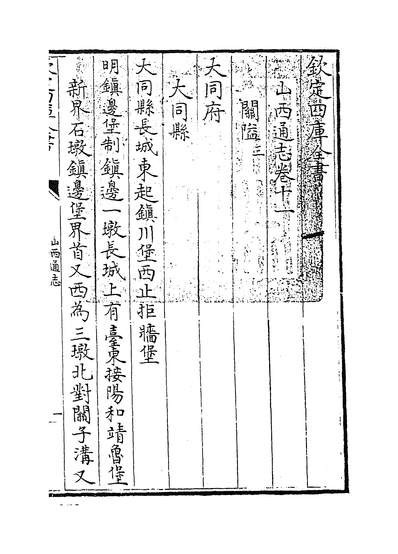 欽定四庫全書
山西通志卷十一
關隘三
大同府
大同縣
大同縣長城東起鎮川堡西止拒牆堡
明鎮邊堡制鎮邊一墩長城上有臺東接陽和靖魯堡
新界石墩鎮邊堡界首又西為三墩北對關子溝又
山西通志
一